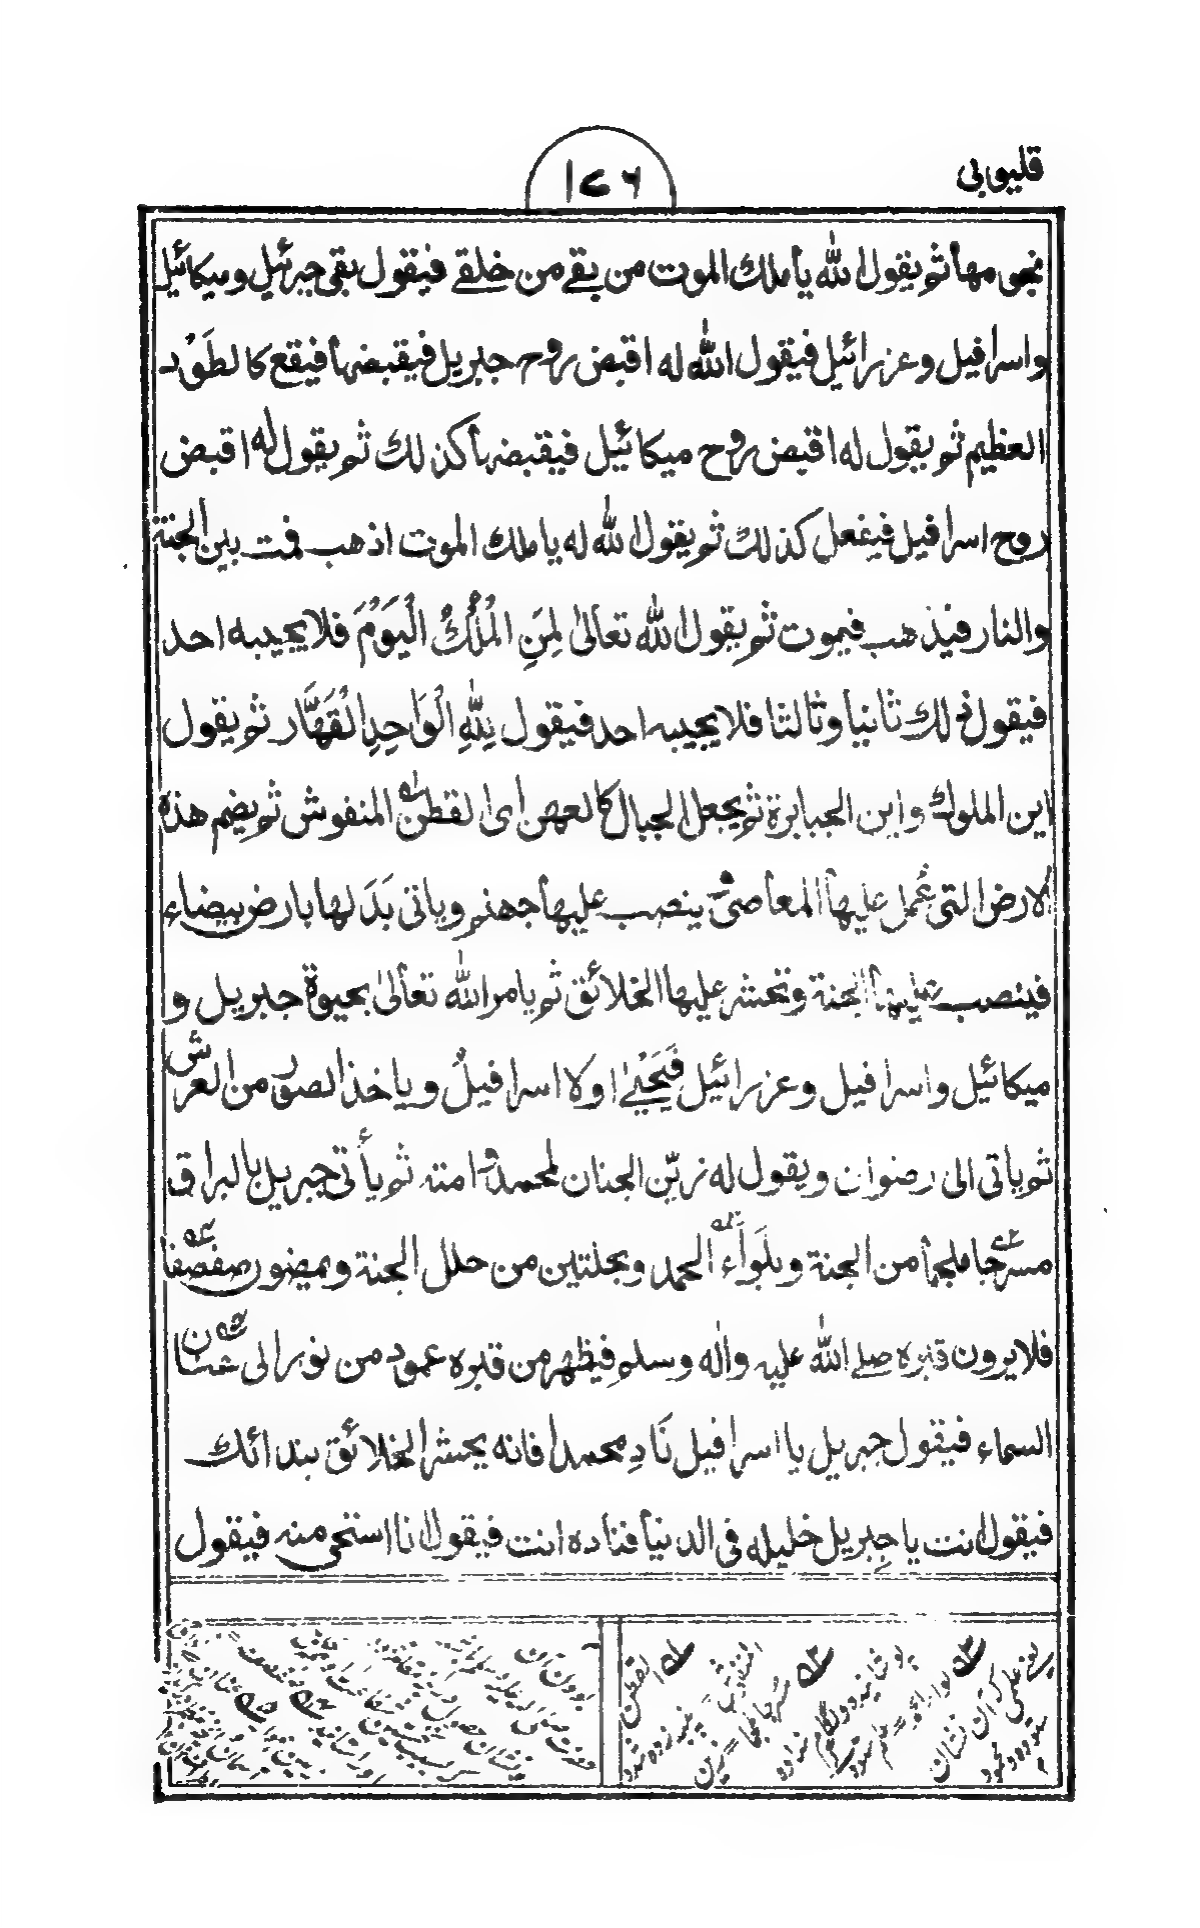 قليوبي
١٧٦
نجومها ثم يقول الله يا ملك الموت من بقے من خلقے فيقول بقى جبرئيل وميكائيل
واسرافيل وعزرائيل فيقول الله له اقبض روح جبريل فيقبضها فيقع كالطَوْد
العظيم ثم يقول له اقبض روح ميكائيل فيقبضها كذلك ثم يقول له اقبض
روح اسرافيل فيفعل كذلك ثم يقول الله له يا ملك الموت اذهب فمت بين الجنة
والنار فيذهب فيموت ثم يقول الله تعالىٰ لِمَنِ الْمُلْكُ الْيَوْمَ فلا يجيبه احد
فيقول ذلك ثانيا وثالثا فلا يجيبه احد فيقول لِلّٰهِ الْوَاحِدِ الْقَهَّار ثم يقول
اين الملوك واين الجبابرة ثم يجعل الجبال كالعهن اى القطن المنفوش ثم يضم هذه
الارض التى عُمل عليها المعاصى ينصب عليها جهنم وياتى بَدَلها بارض بيضاء
فينصب عليها الجنة وتحشر عليها الخلائق ثم يامر الله تعالىٰ بحيوة جبريل و
ميكائيل واسرافيل وعزرائيل فَيَحْيٰے اولا اسرافيل وياخذ الصور من العرش
ثم ياتى الى رضوان ويقول له زيّن الجنان لمحمد وامته ثم يأتى جبريل بالبراق
مسرجا ملجما من الجنة وبلوَاء الحمد وبحلتين من حلل الجنة ويمضون صفصفا
فلا يرون قبره صلے الله عليه واٰله وسلم فيظهر من قبره عمود من نور الى عنان
السماء فيقول جبريل يا اسرافيل نَادِ محمدا فانه يحشر الخلائق بندائك
فيقول انت يا جبريل خليله فى الدنيا فناده انت فيقول انا استحى منه فيقول